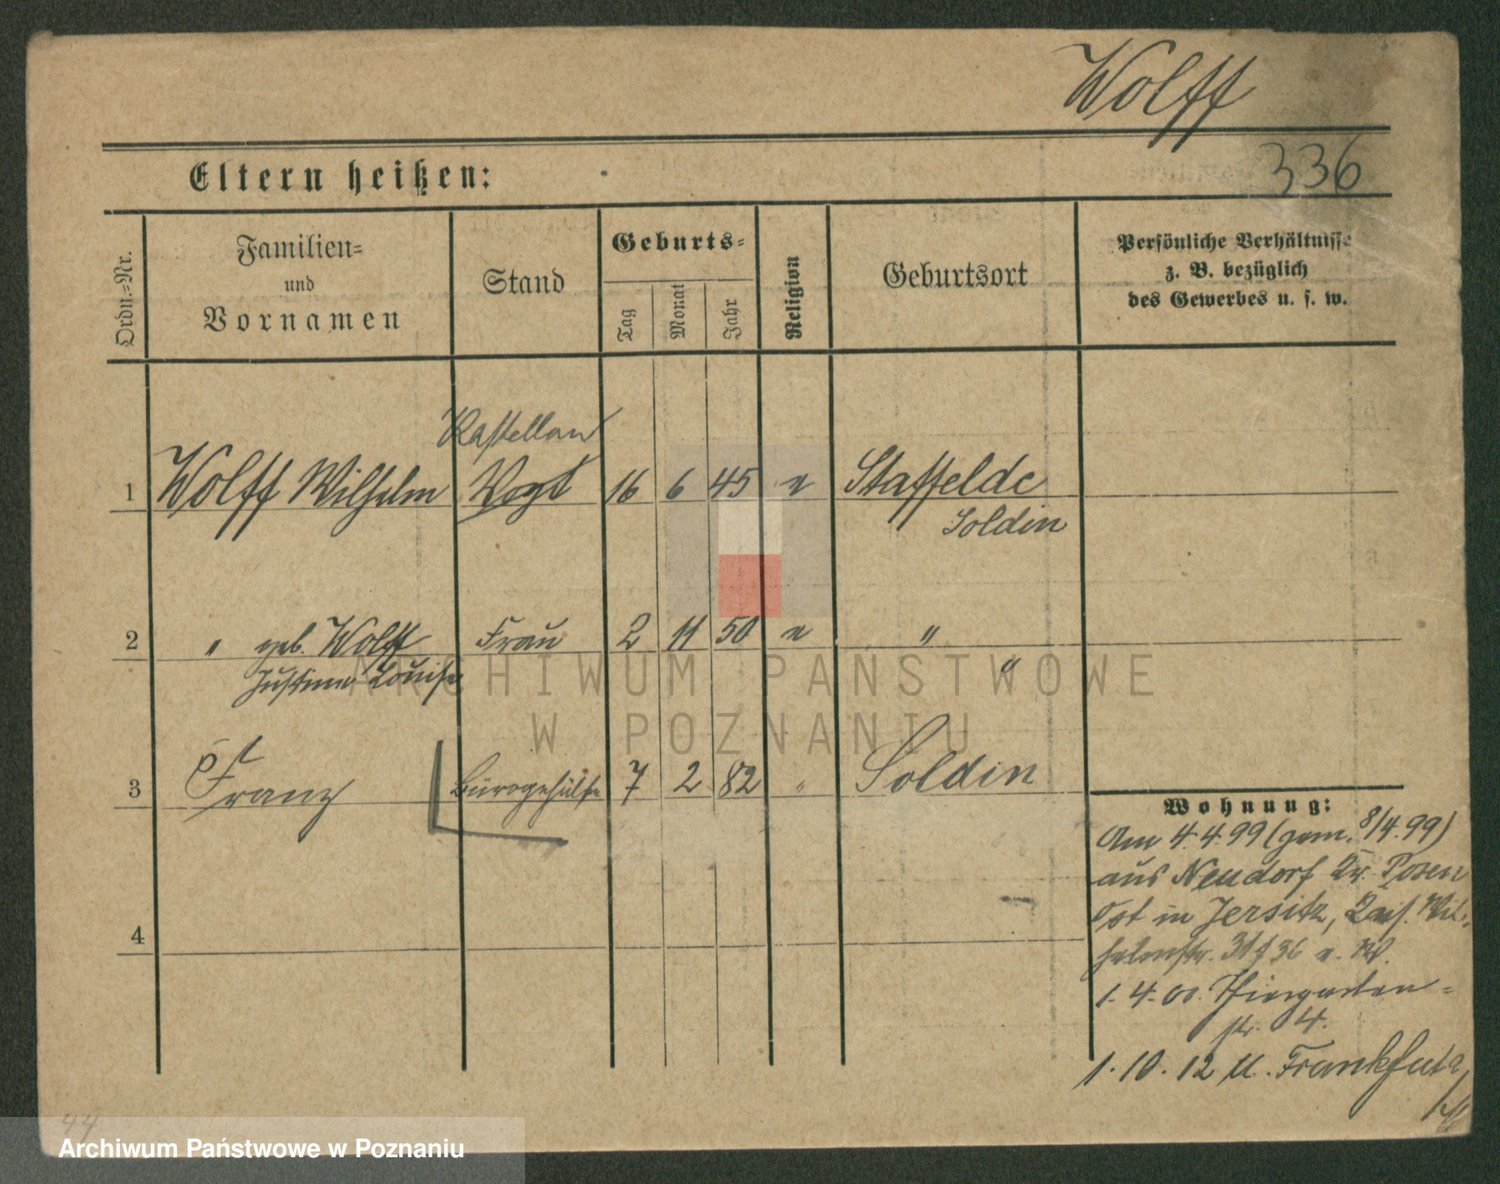 Wolff
336
Eltern heißen:
Ordn.-Nr.
Familien-
und
Vornamen
Stand
Geburts-
Tag
Monat
Jahr
Religion
Geburtsort
Persönliche Verhältnisse
z. B. bezüglich
des Gewerbes u. s. w.
Kastellan
1 Wolff Wilhelm Vogt 16 6 45 e Staffelde
Soldin
2 " geb. Wolff Frau 2 11 50 e "
Justine Louise "
3 Franz Bürogehülfe 7 2 82 " Soldin
4
Wohnung:
Am 4.4.99 (gem. 8/4.99)
aus Neudorf Kr. Posen
Ost in Jersitz, Kais. Wil-
helmstr. 31/36 e. W.
1.4.00. Thiergarten-
str. 4.
1.10.12 u. Frankfurt
44
ARCHIWUM PAŃSTWOWE
W POZNANIU
Archiwum Państwowe w Poznaniu